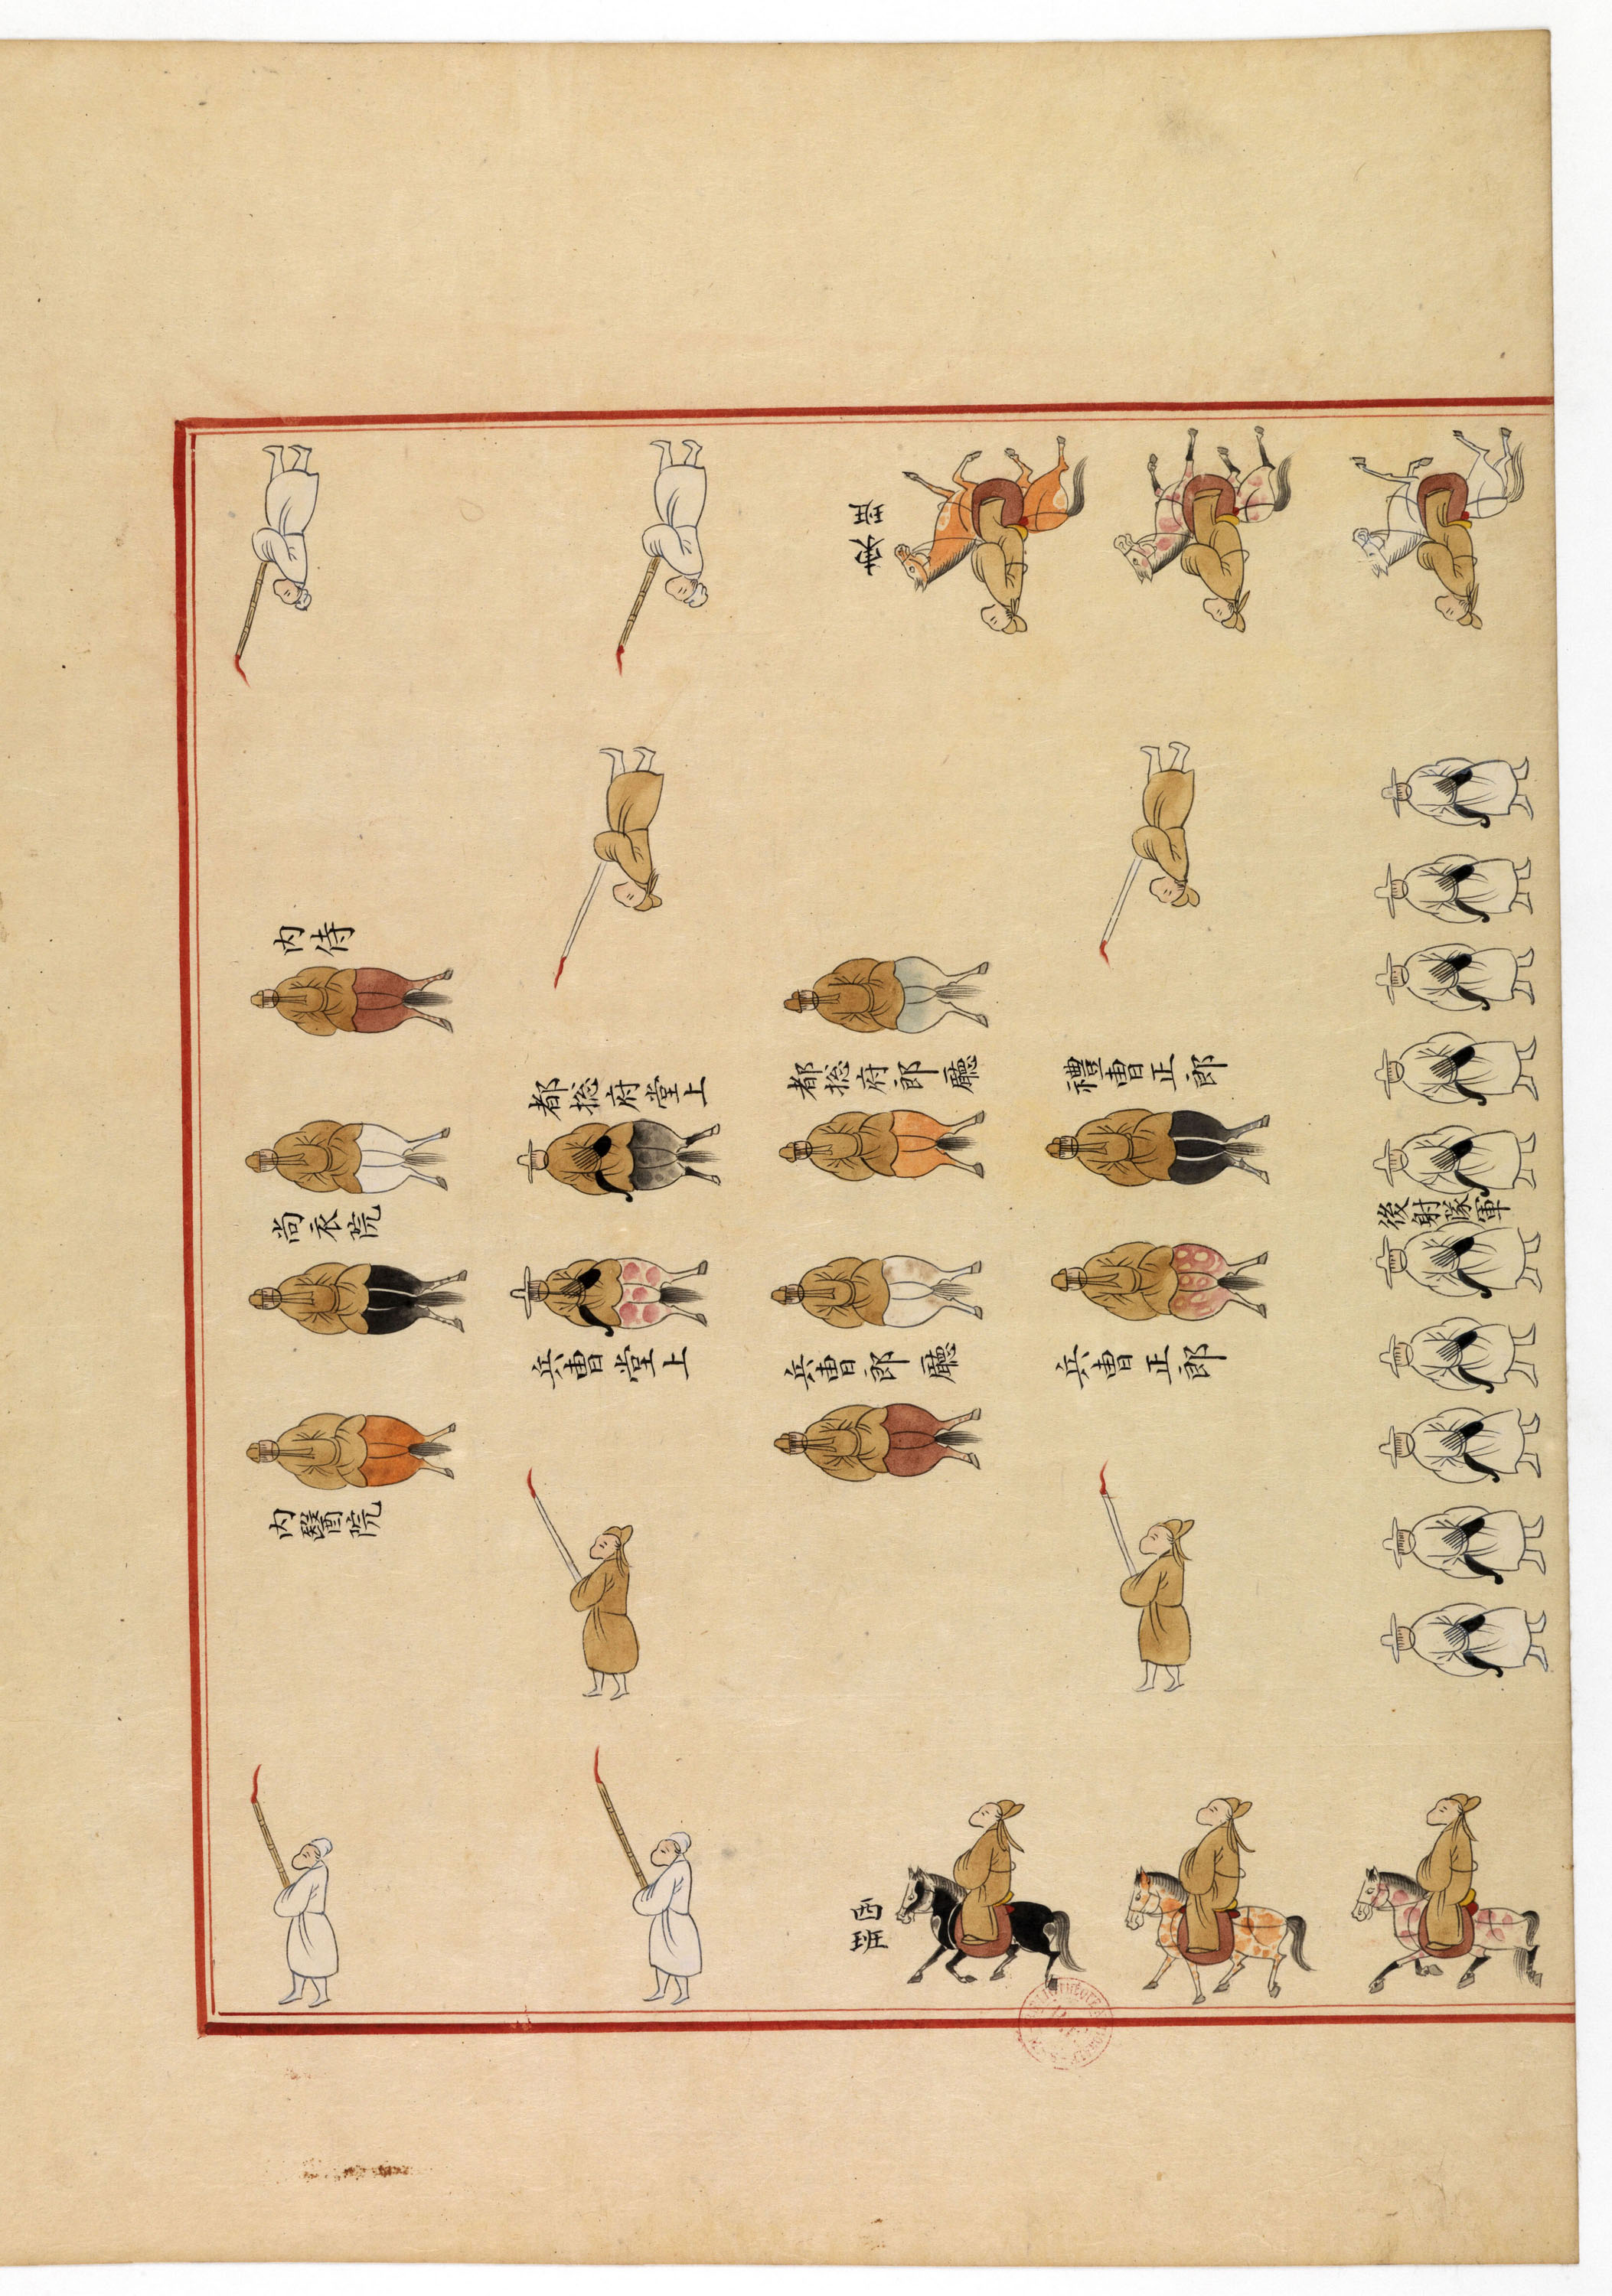 東班
內侍
尚衣院
內醫院
都捴府堂上
兵曹堂上
都捴府郎廳
兵曹郎廳
禮曹正郎
兵曹正郎
後射隊軍
西班